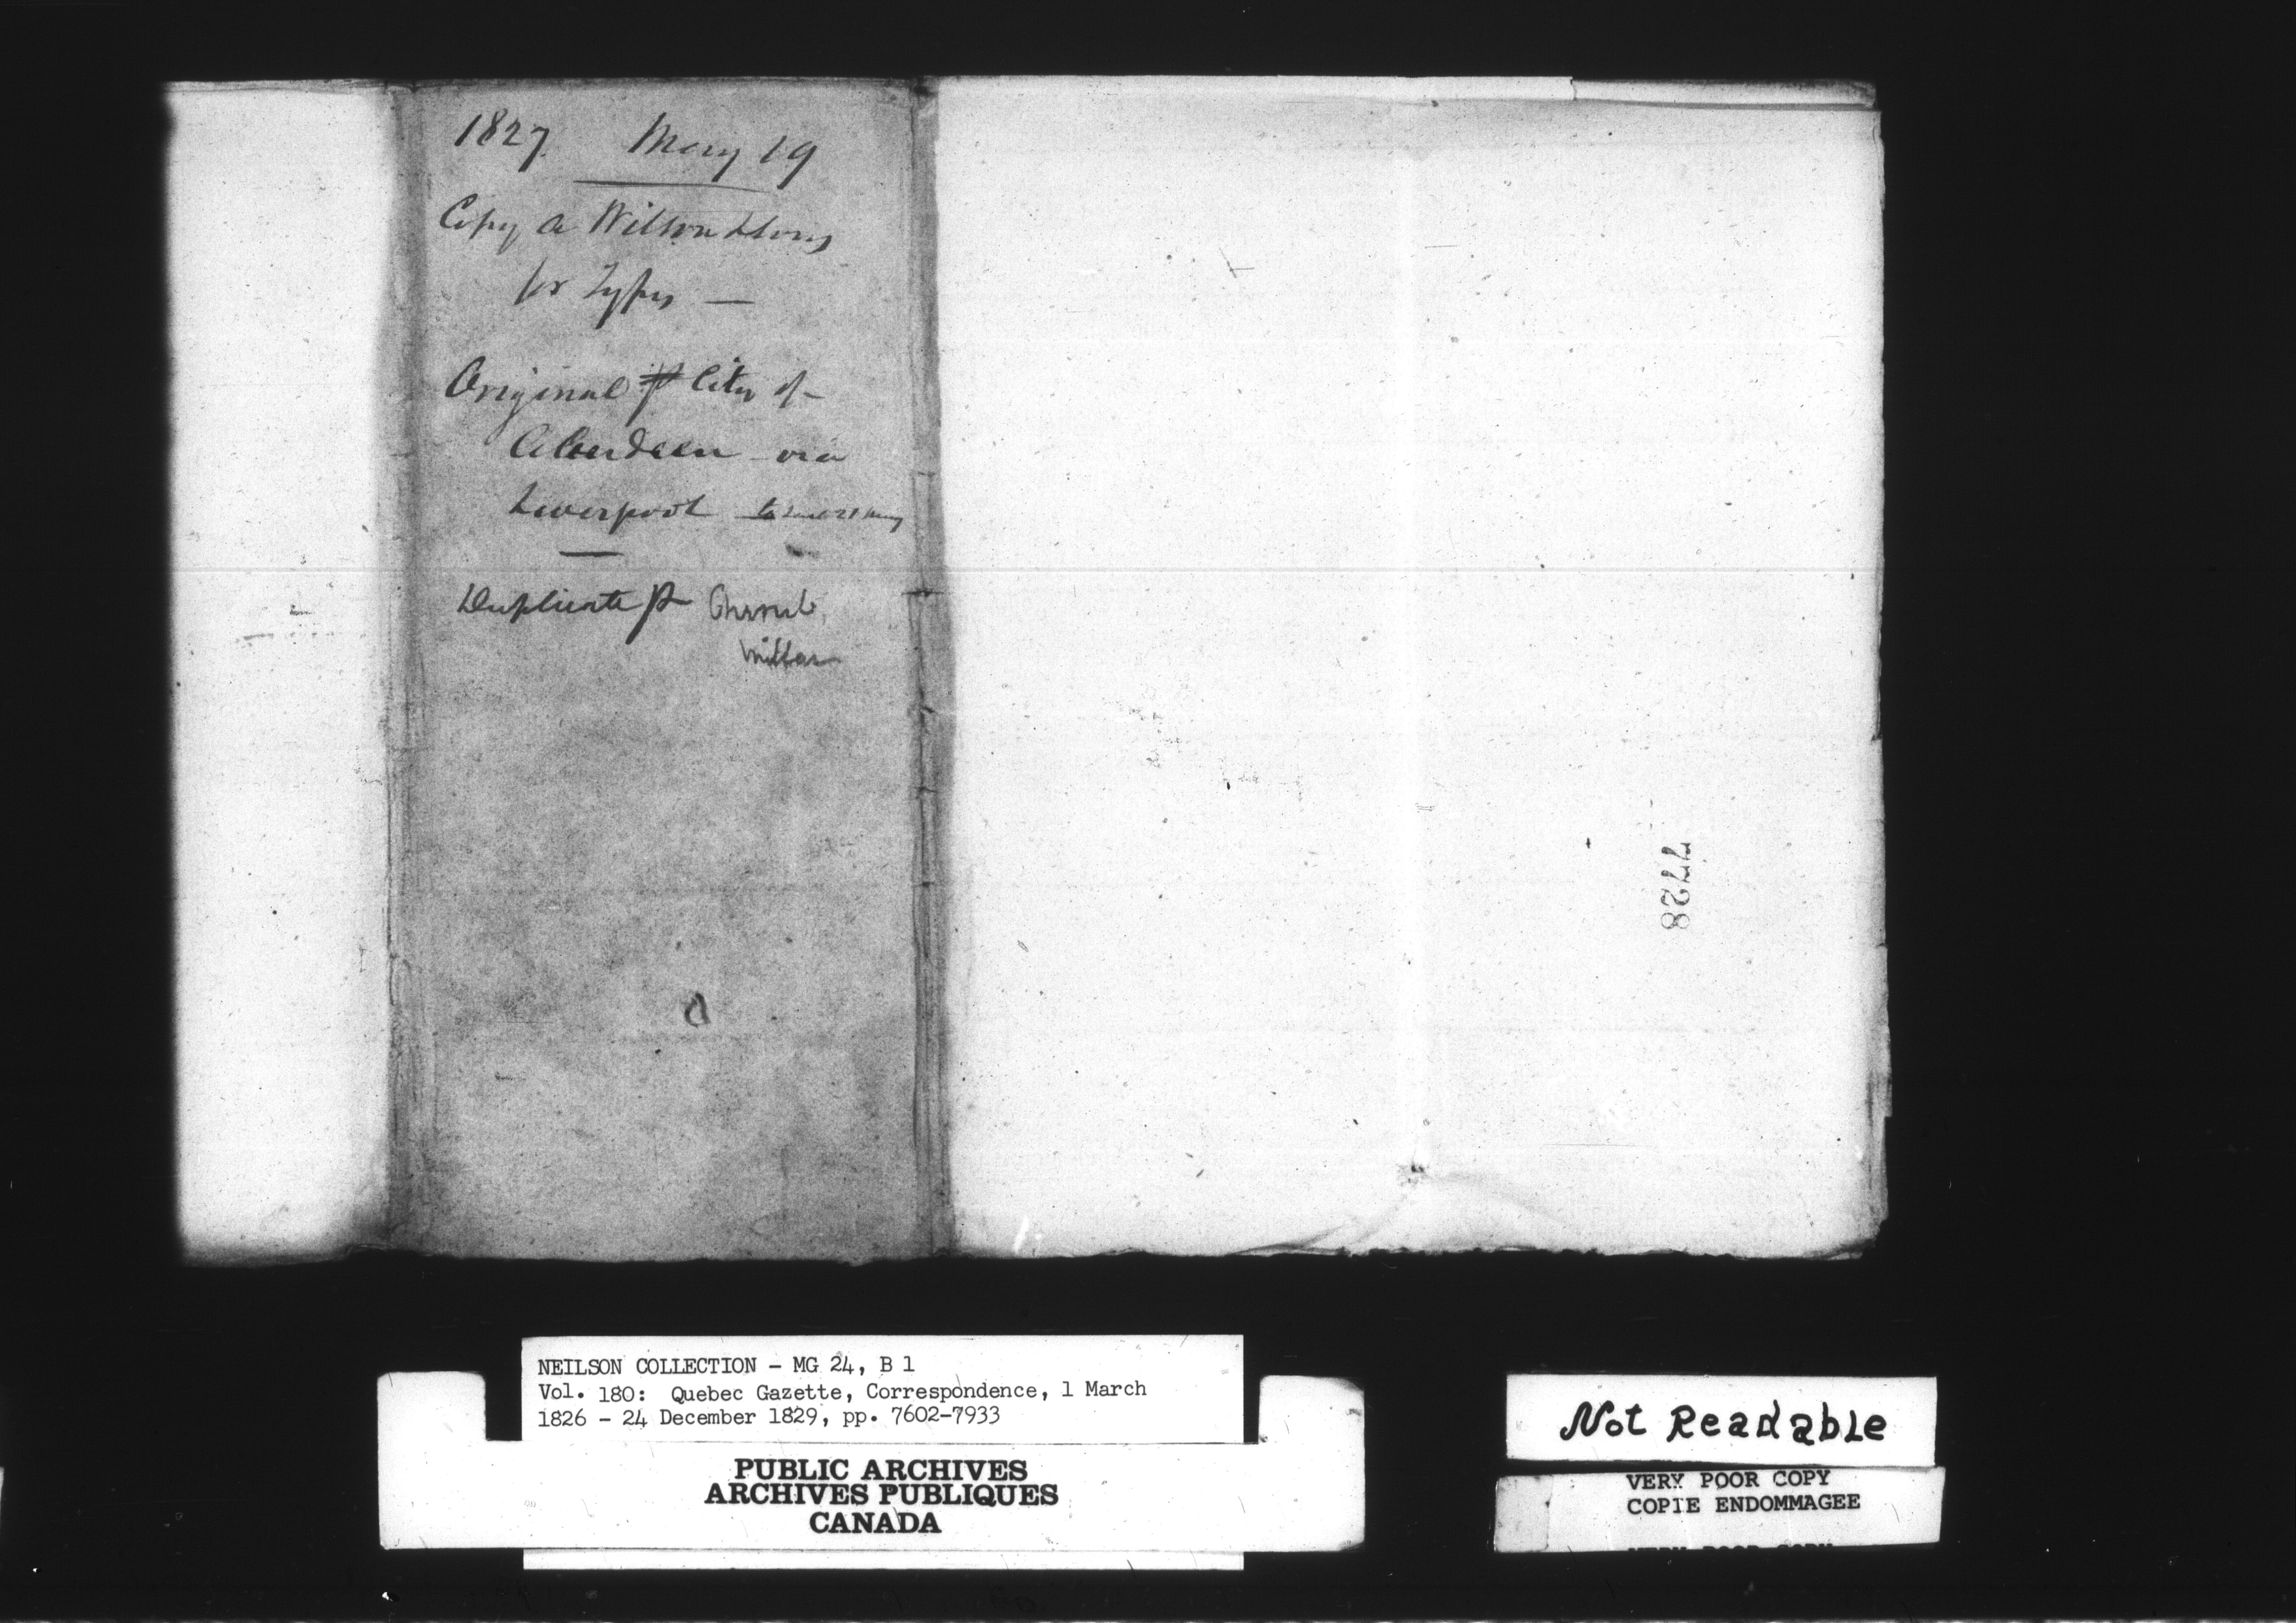 1827. May 19
Copy a Wilson & Sons
for Types —
Original p City of
Aberdeen via
Liverpool to sail 21 May
Duplicate p Cherub,
Millar
7728
NEILSON COLLECTION - MG 24, B 1
Vol. 180: Quebec Gazette, Correspondence, 1 March
1826 - 24 December 1829, pp. 7602-7933
PUBLIC ARCHIVES
ARCHIVES PUBLIQUES
CANADA
Not Readable
VERY POOR COPY
COPIE ENDOMMAGEE
VERY POOR COPY